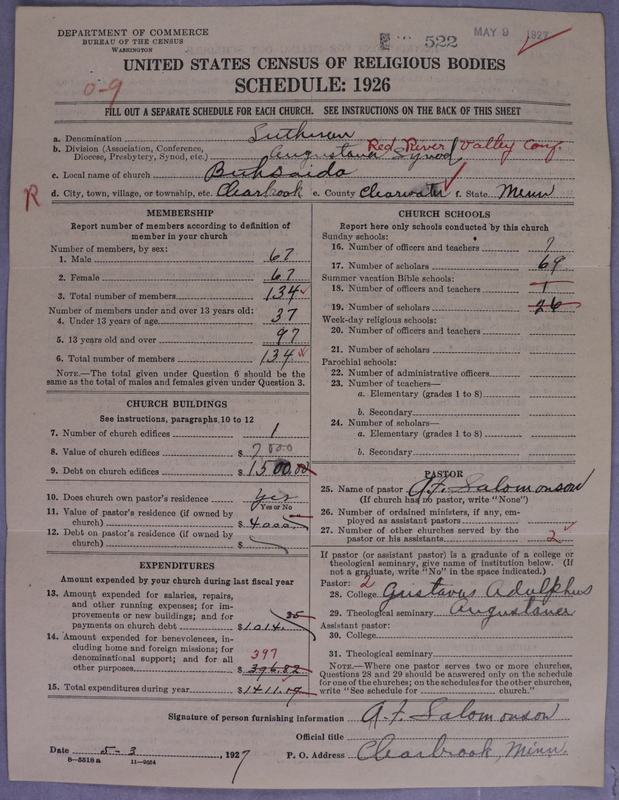 DEPARTMENT OF COMMERCE
BUREAU OF THE CENSUS
WASHINGTON
522
MAY 9 1927
UNITED STATES CENSUS OF RELIGIOUS BODIES
SCHEDULE: 1926
0-9
FILL OUT A SEPARATE SCHEDULE FOR EACH CHURCH. SEE INSTRUCTIONS ON THE BACK OF THIS SHEET
a. Denomination Lutheran
b. Division (Association, Conference, Diocese, Presbytery, Synod, etc.) Augustana Synod Red River Valley Conf.
c. Local name of church Bethsaida
R
d. City, town, village, or township, etc. Clearbrook e. County Clearwater f. State Minn
MEMBERSHIP
Report number of members according to definition of member in your church
Number of members, by sex:
1. Male 67
2. Female 67
3. Total number of members 134
Number of members under and over 13 years old:
4. Under 13 years of age 37
5. 13 years old and over 97
6. Total number of members 134
NOTE.—The total given under Question 6 should be the same as the total of males and females given under Question 3.
CHURCH BUILDINGS
See instructions, paragraphs 10 to 12
7. Number of church edifices 1
8. Value of church edifices $7000
9. Debt on church edifices $1500.00
10. Does church own pastor's residence yes
Yes or No
11. Value of pastor's residence (if owned by church) $4000
12. Debt on pastor's residence (if owned by church) $
EXPENDITURES
Amount expended by your church during last fiscal year
13. Amount expended for salaries, repairs, and other running expenses; for improvements or new buildings; and for payments on church debt $1014.35
14. Amount expended for benevolences, including home and foreign missions; for denominational support; and for all other purposes 397 $396.82
15. Total expenditures during year $1411.17
CHURCH SCHOOLS
Report here only schools conducted by this church
Sunday schools:
16. Number of officers and teachers 7
17. Number of scholars 69
Summer vacation Bible schools:
18. Number of officers and teachers 1
19. Number of scholars 26
Week-day religious schools:
20. Number of officers and teachers
21. Number of scholars
Parochial schools:
22. Number of administrative officers
23. Number of teachers—
a. Elementary (grades 1 to 8)
b. Secondary
24. Number of scholars—
a. Elementary (grades 1 to 8)
b. Secondary
PASTOR
25. Name of pastor A.F. Salomonson
(If church has no pastor, write "None")
26. Number of ordained ministers, if any, employed as assistant pastors
27. Number of other churches served by the pastor or his assistants 2
If pastor (or assistant pastor) is a graduate of a college or theological seminary, give name of institution below. (If not a graduate, write "No" in the space indicated.)
Pastor: 2
28. College Gustavus Adolphus
29. Theological seminary Augustana
Assistant pastor:
30. College
31. Theological seminary
NOTE.—Where one pastor serves two or more churches, Questions 28 and 29 should be answered only on the schedule for one of the churches; on the schedules for the other churches, write "See schedule for church."
Signature of person furnishing information A.F. Salomonson
Official title
Date 5-3, 1927
P. O. Address Clearbrook, Minn.
8—5518 a 11—9654